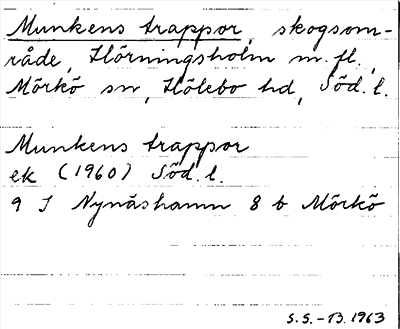 Munkens trappor, skogsom-
råde, Hörningsholm m. fl.,
Mörkö sn, Hölebo hd, Söd. l.
Munkens trappor
ek (1960) Söd. l.
9 I Nynäshamn 8 b Mörkö
S.S.-B. 1963